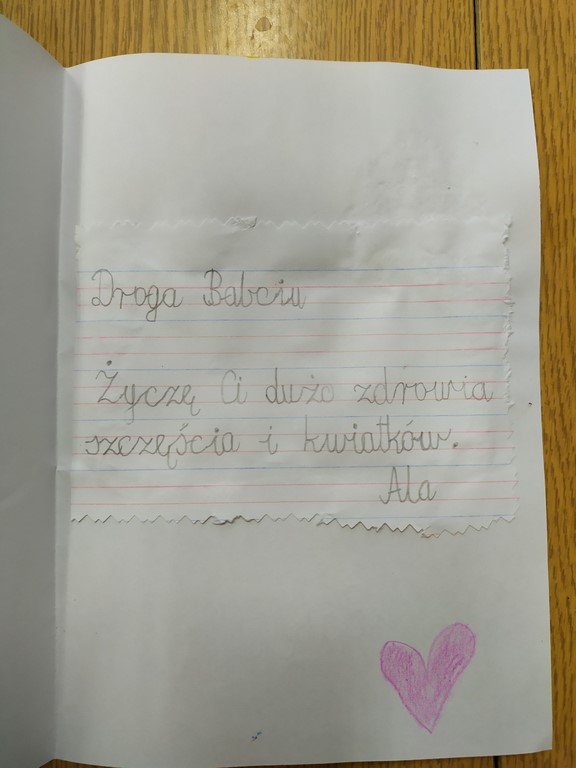 Droga Babciu
Życzę Ci dużo zdrowia
szczęścia i kwiatków.
Ala